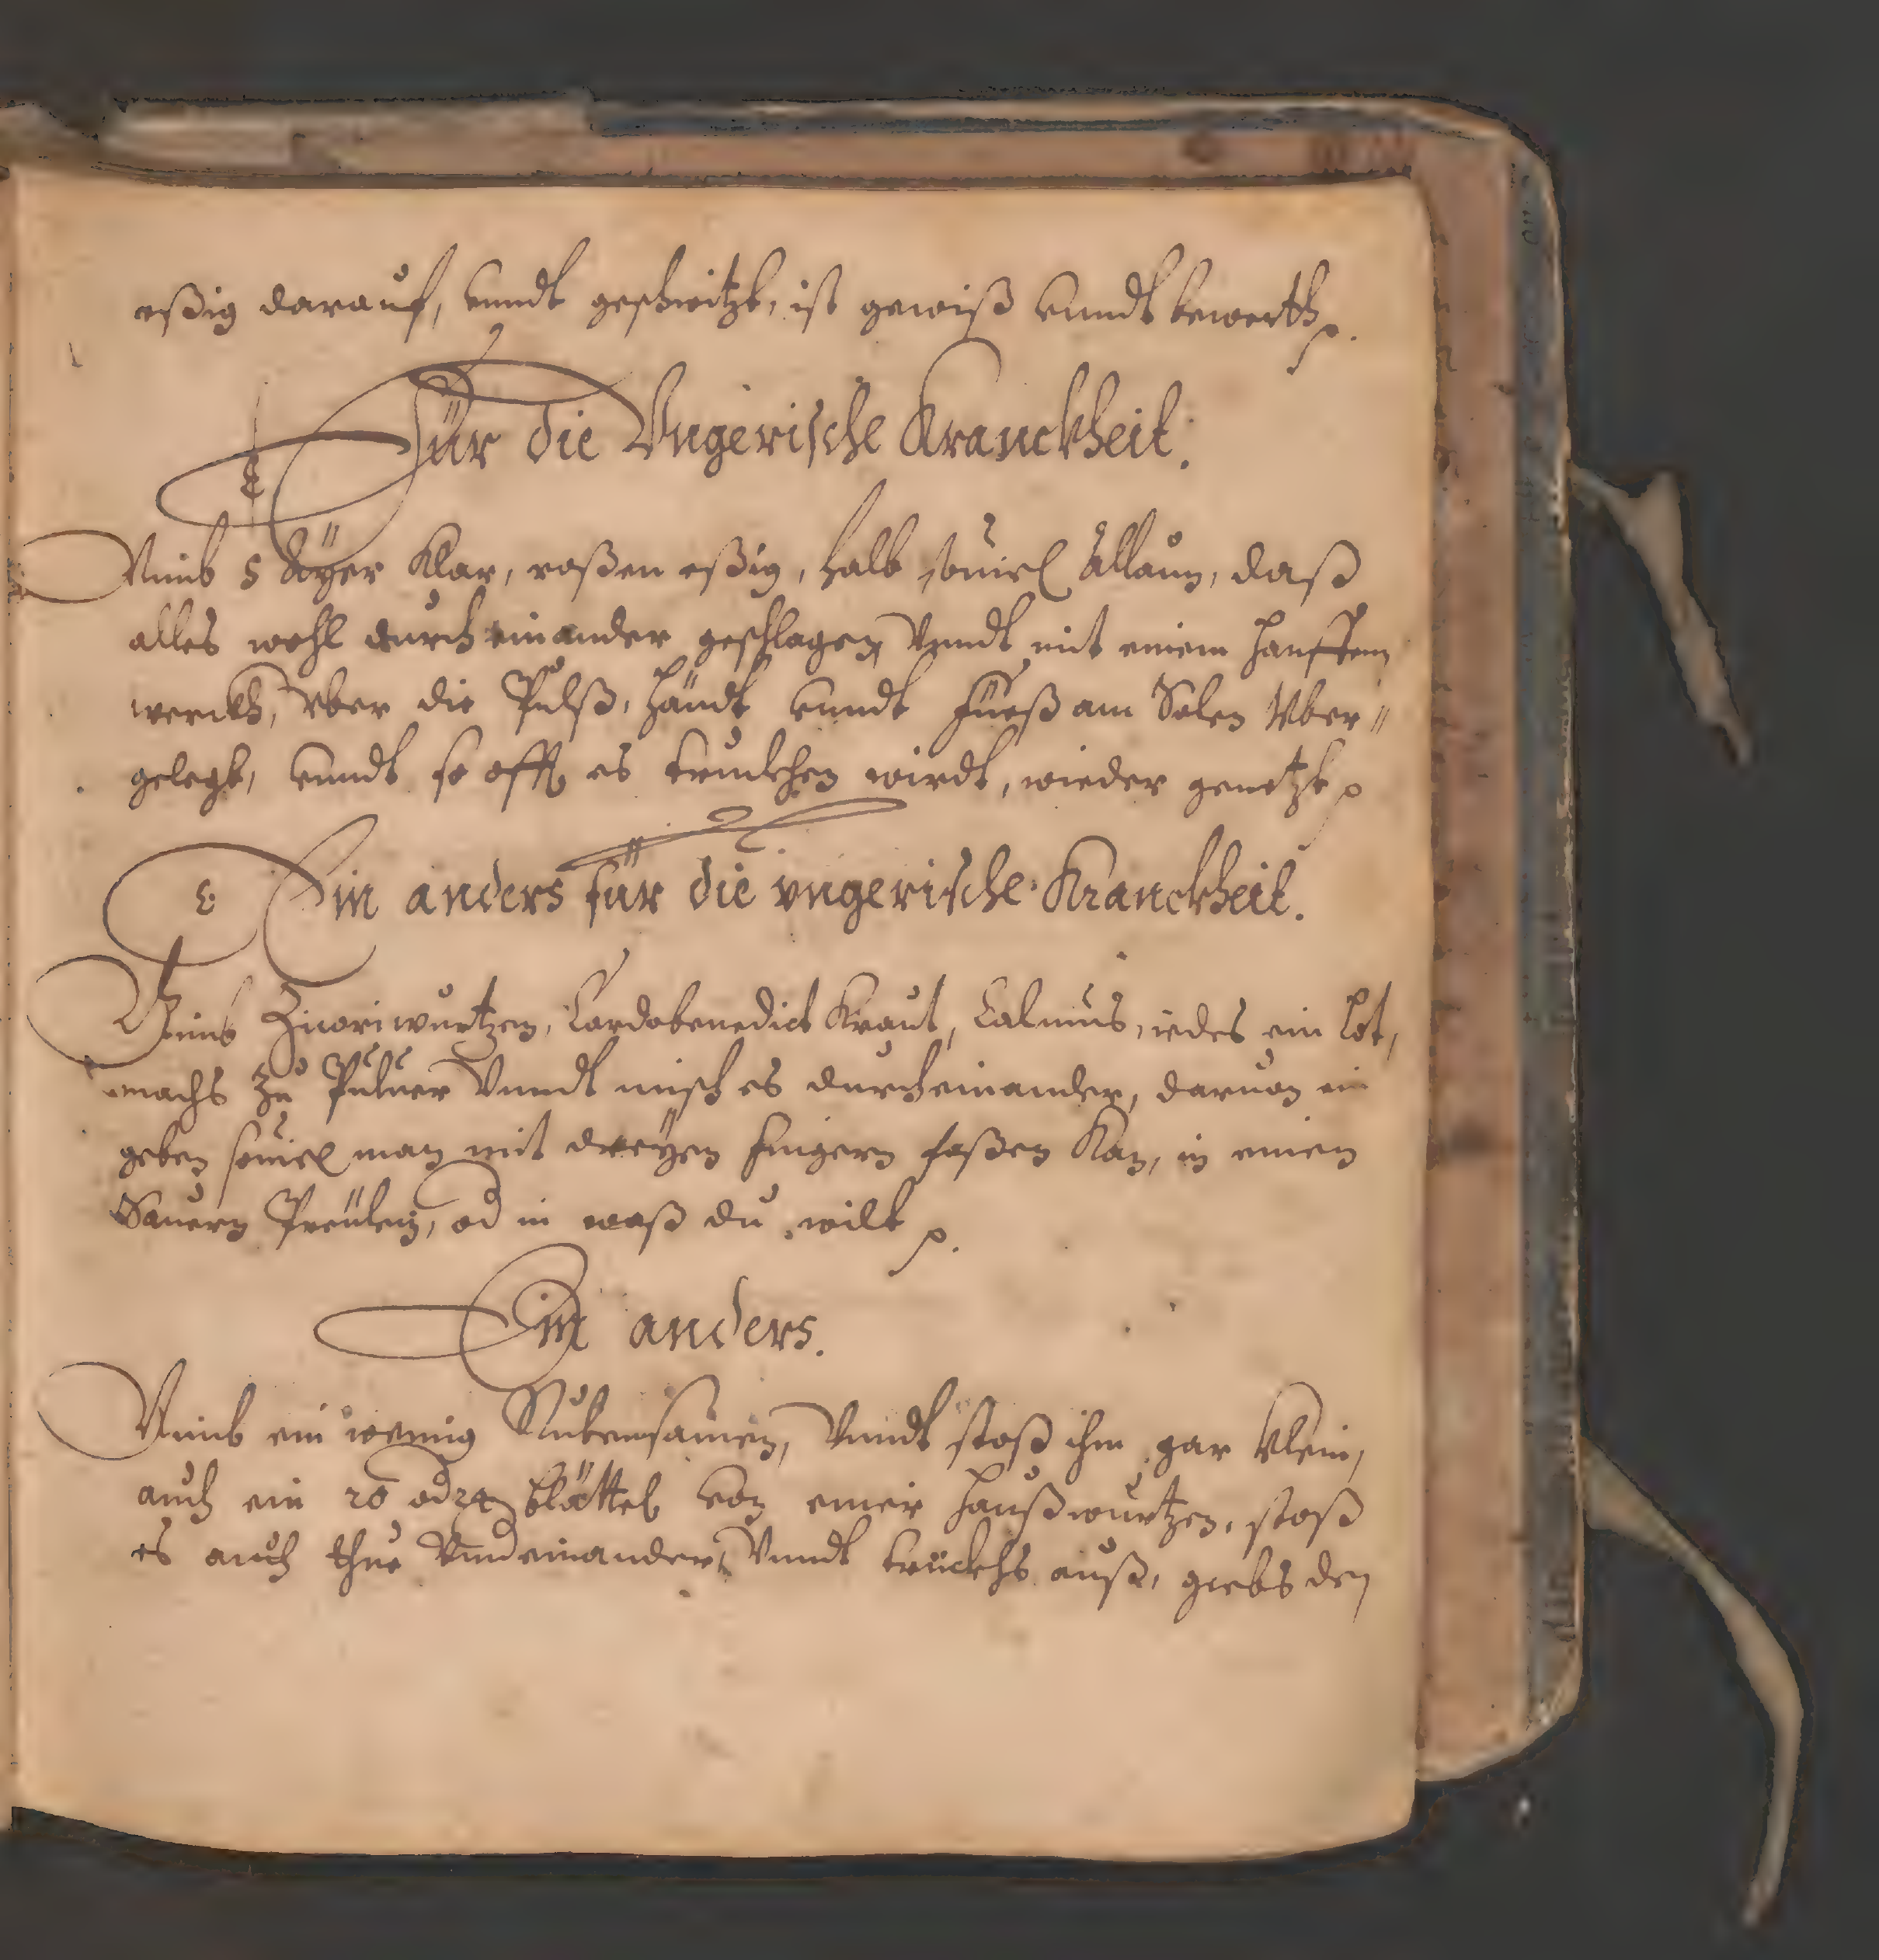 eßig darauf, vnndt geschwitzt, ist gewiß vnndt bewerth.
Für die Vngerische Kranckheit.
Nimb 5 Ayer Klar, roßen eßig, halb souiel Allaun, daß
alles wohl durch einander geschlagen, Vnndt mit einem hanffenn
werckh, Vber die Pulß, händt vnndt füeß am Solen Vber"
gelegt, vnndt so offt es truckhen wirdt, wieder genetzt
Ein anders für die vngerische Kranckheit.
Nimb wurtzen, Cardobenedict Kraut, Calmus, iedes ein Lot,
machs Zu Puluer Vnndt misch es durcheinander, daruon ein
geben souiel man mit dreÿen fingern faßen Kan, in einen
Sauern od in waß du wilt
Ein anders.
Nimb ein wenig Rubensamen, Vnndt stoß ihm gar klein,
auch ein 20 od 24 blättel von einer haußwurtzen, stoß
es auch thue Vnndt truckhs auß, giebs den